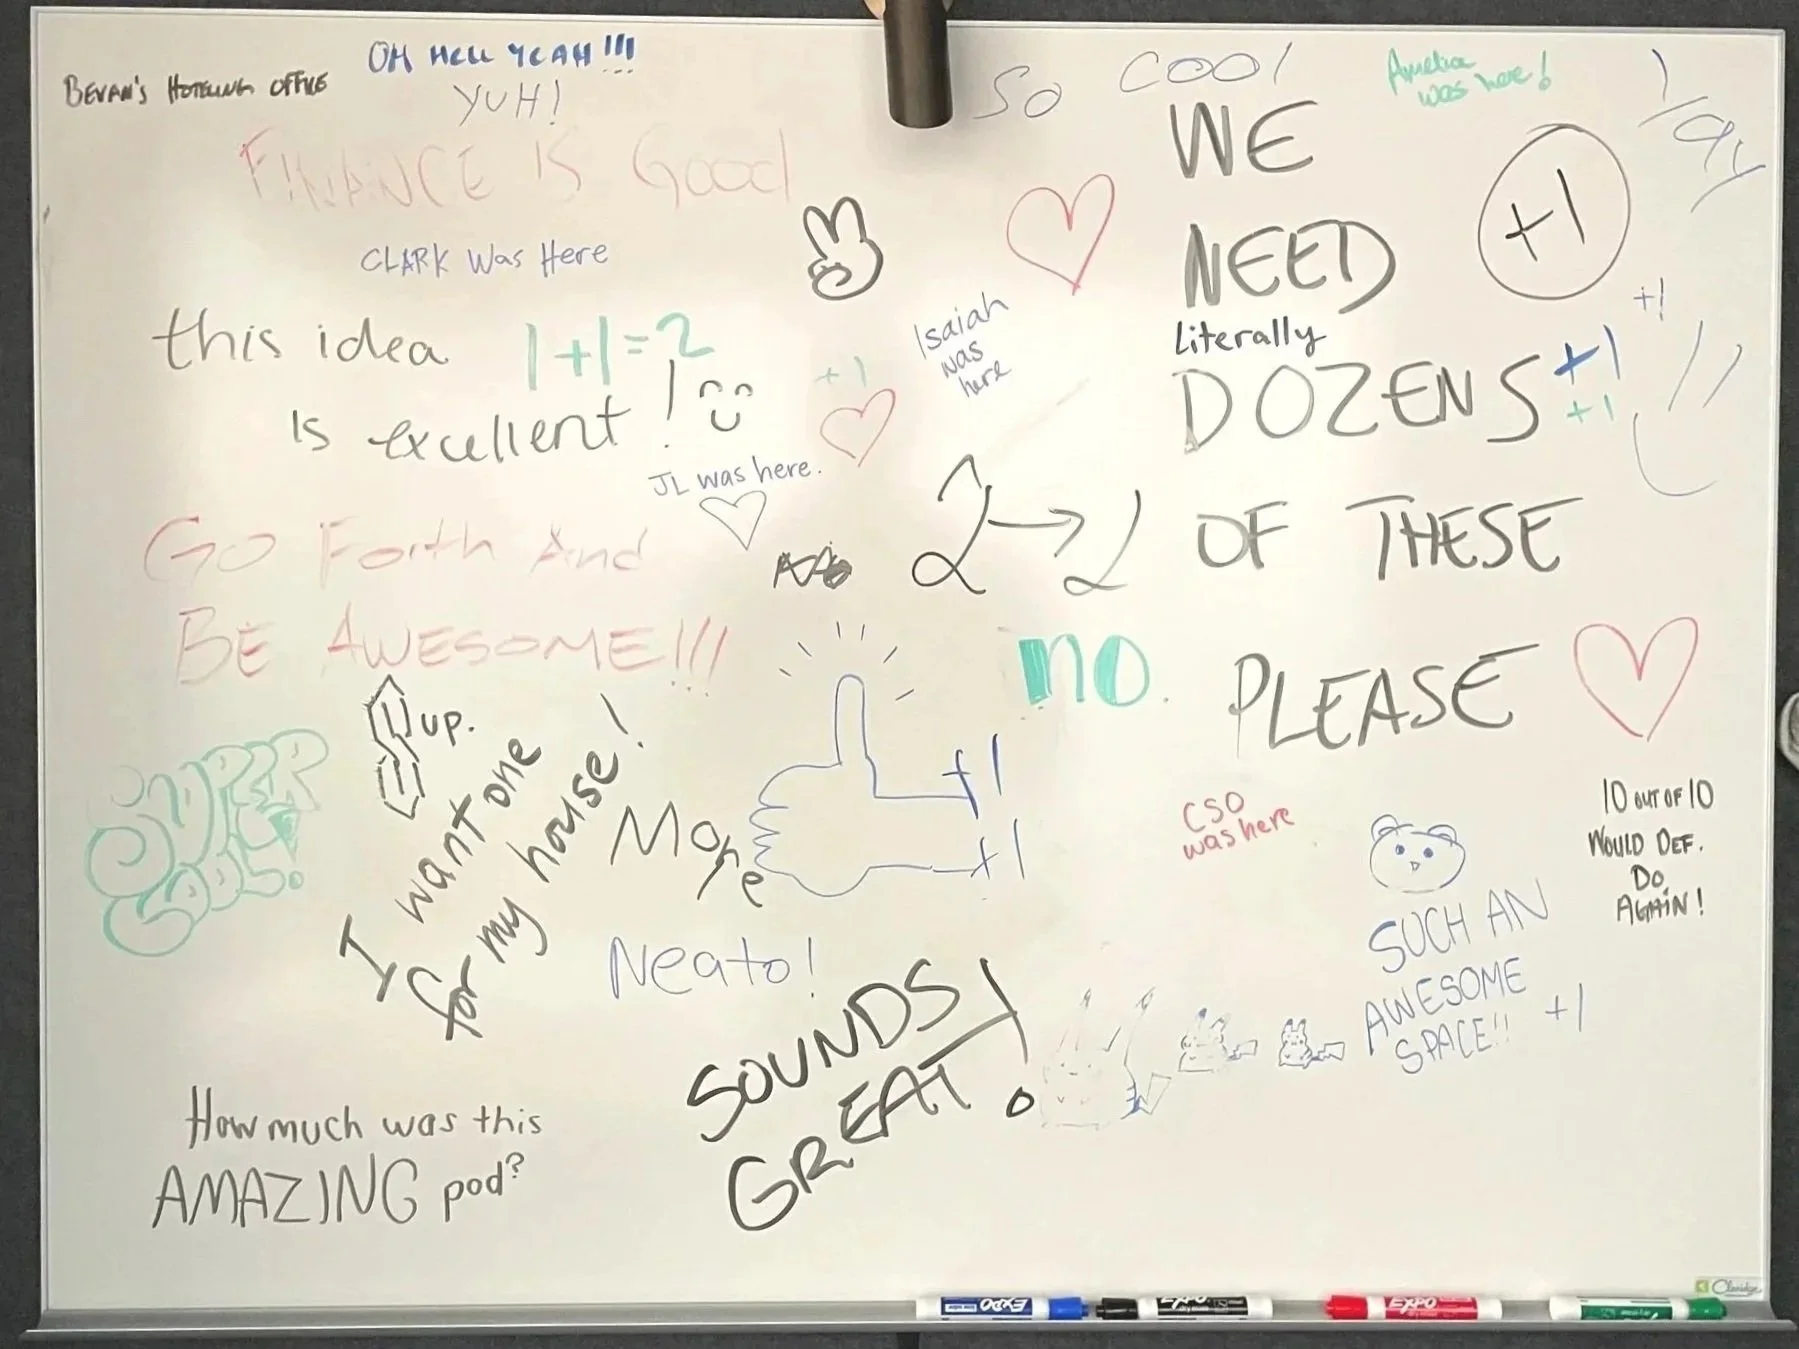 BEVAN'S HOTELING OFFICE
OH HELL YEAH!!!
YUH!
SO COOL
Amelia
was here!
Yay
FINANCE IS GOOD
WE
NEED
Literally
DOZENS
OF THESE
PLEASE
+1
+1
+1
+1
CLARK Was Here
this idea
is excellent!
1+1=2
+1
Isaiah
was
here
JL was here.
2→2
GO Forth And
BE AWESOME!!!
no.
UP.
SUPER
COOL.
I want one
for my house!
More
+1
+1
CSO
was here
10 OUT OF 10
WOULD DEF.
DO
AGAIN!
Neato!
SOUNDS
GREAT!
SUCH AN
AWESOME
SPACE!!
+1
How much was this
AMAZING pod?
EXPO
EXPO
EXPO
Claridge